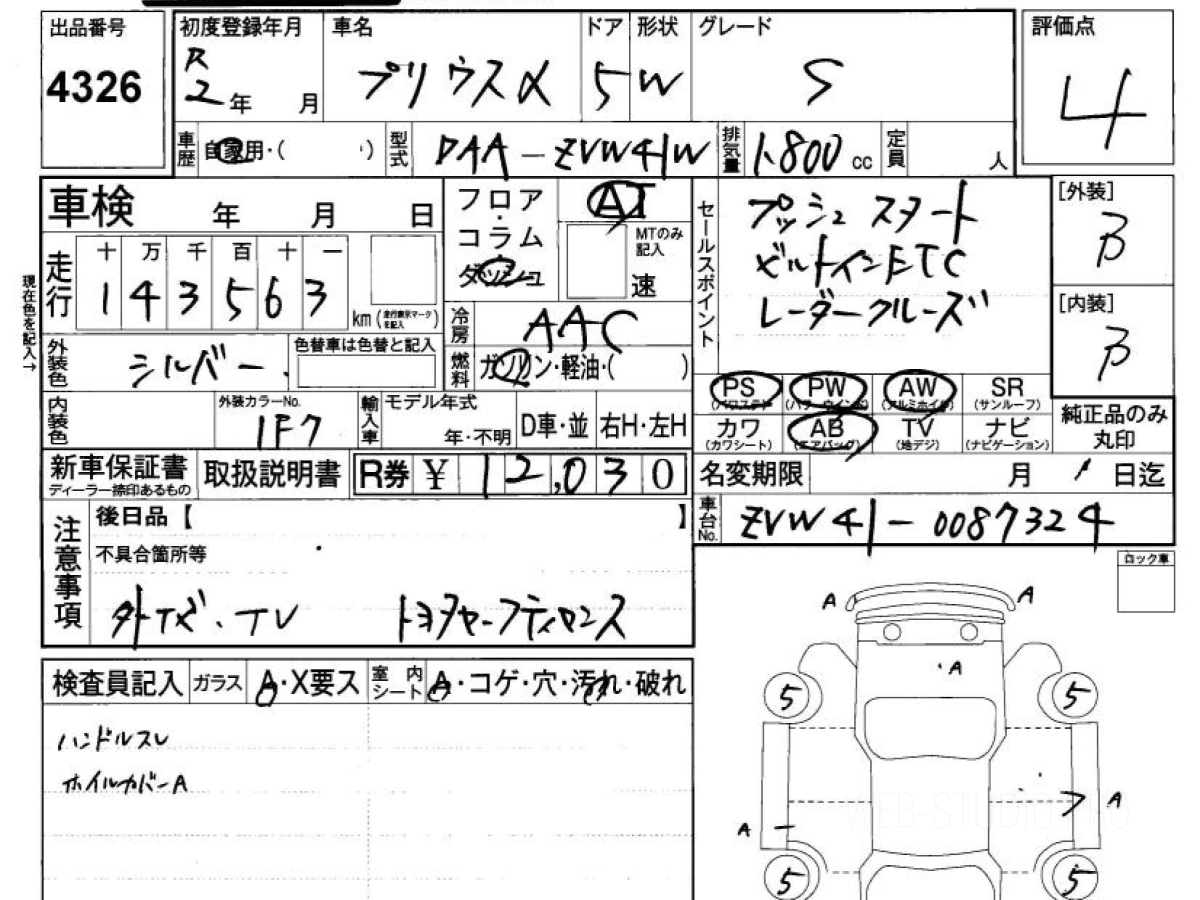 出品番号 初度登録年月 車名 ドア 形状 グレード 評価点
4326 R 2年 月 プリウスα 5 W S 4
車歴 自家用・( ) 型式 DAA-ZVW41W 排気量 1.800cc 定員 人
車検 年 月 日
フロア・コラム・ダッシュ AT
MTのみ記入
速
セールスポイント
プッシュスタート
ビルトインETC
レーダークルーズ
[外装]
B
[内装]
B
現在色を記入→
走行 十 万 千 百 十 一
1 4 3 5 6 3 km(走行表示マークを記入)
冷房 AAC
外装色 シルバー 色替車は色替と記入
燃料 ガソリン・軽油・( )
PS (パワステ) PW (パワーウインド) AW (アルミホイル) SR (サンルーフ)
カワ (カワシート) AB (エアバッグ) TV (地デジ) ナビ (ナビゲーション)
純正品のみ丸印
内装色 外装カラーNo. 1F7 輸入車 モデル年式 年・不明 D車・並 右H・左H
新車保証書 ディーラー捺印あるもの 取扱説明書 R券 ¥ 12,030
名変期限 月 日迄
車台No. ZVW41-0087324
注意事項
後日品【 】
不具合箇所等
外ナビ・TV トヨタセーフティセンス
ロック車
検査員記入 ガラス A・X要ス 室内シート A・コゲ・穴・汚れ・破れ
ハンドルスレ
ホイルカバーA
A A
A
5 5
A
A
5 5
WEB-STUDIO.PRO